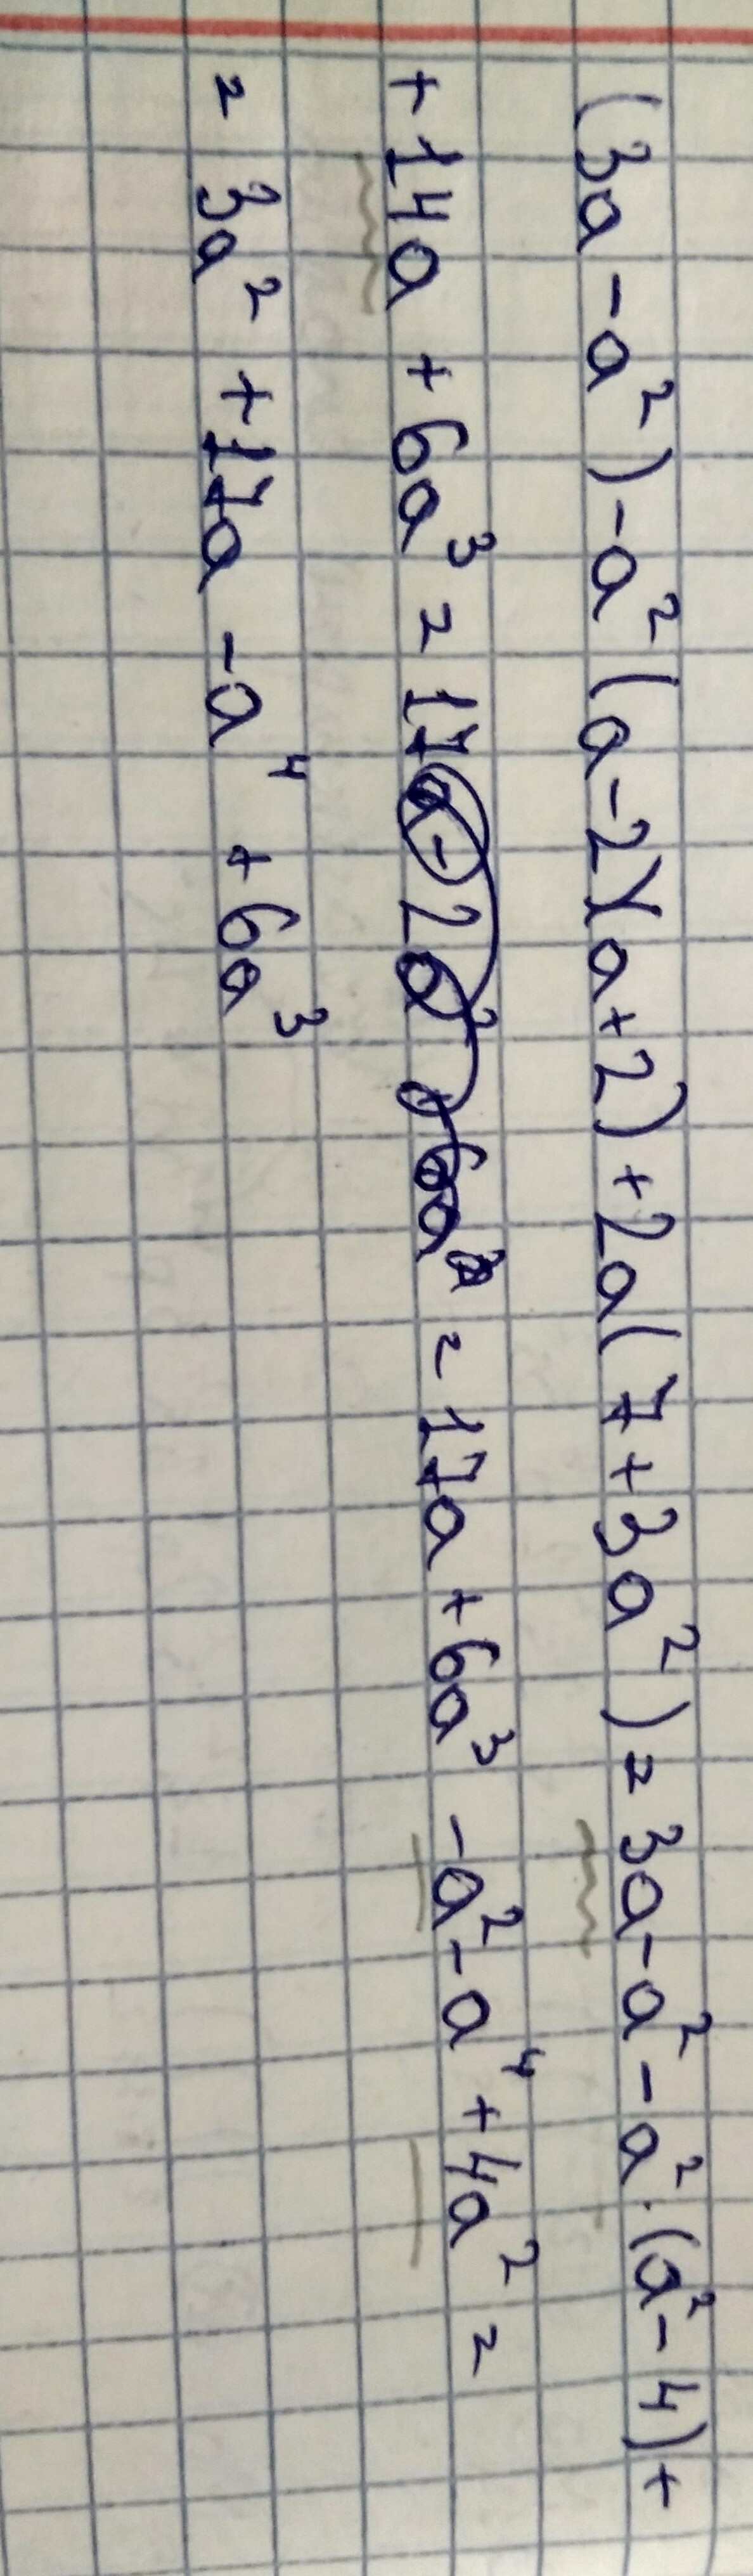 (3a - a²) - a² (a - 2)(a + 2) + 2a (7 + 3a²) = 3a - a² - a² · (a² - 4) +
+ 14a + 6a³ = 17 = 17a + 6a³ - a² - a⁴ + 4a² =
= 3a² + 17a - a⁴ + 6a³